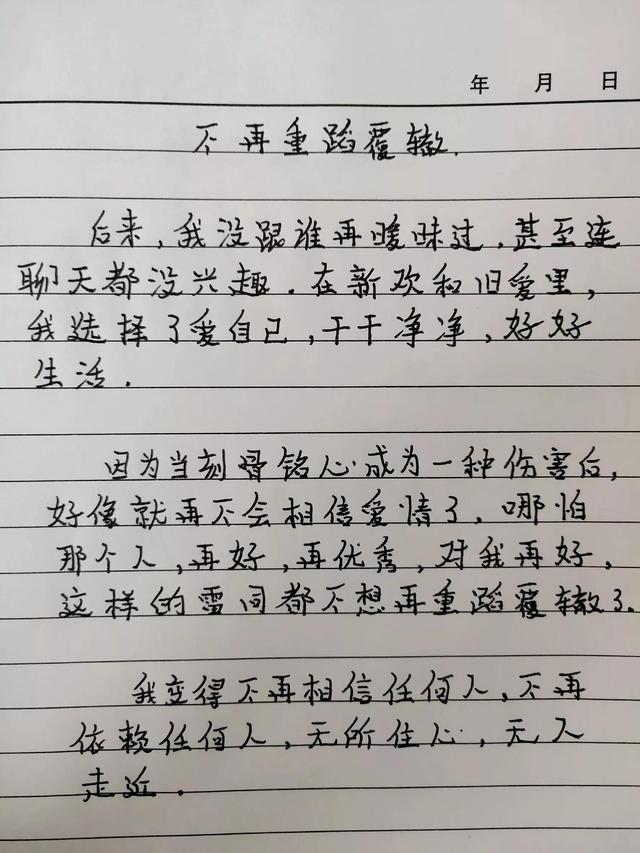 年 月 日
不再重蹈覆辙.
后来,我没跟谁再暧昧过,甚至连
聊天都没兴趣.在新欢和旧爱里,
我选择了爱自己,干干净净,好好
生活.
因为当刻骨铭心成为一种伤害后,
好像就再不会相信爱情了,哪怕
那个人,再好,再优秀,对我再好,
这样的雷同都不想再重蹈覆辙了.
我变得不再相信任何人,不再
依赖任何人,无所住心,无人
走近.